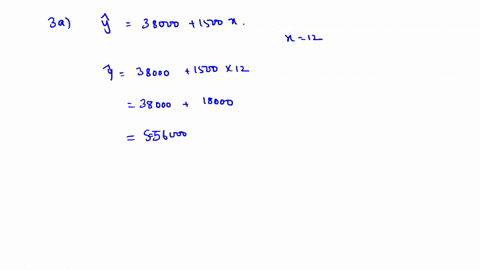 3a) ŷ = 38000 + 1500 x.
x = 12
ŷ = 38000 + 1500 × 12
= 38000 + 18000
= 56000